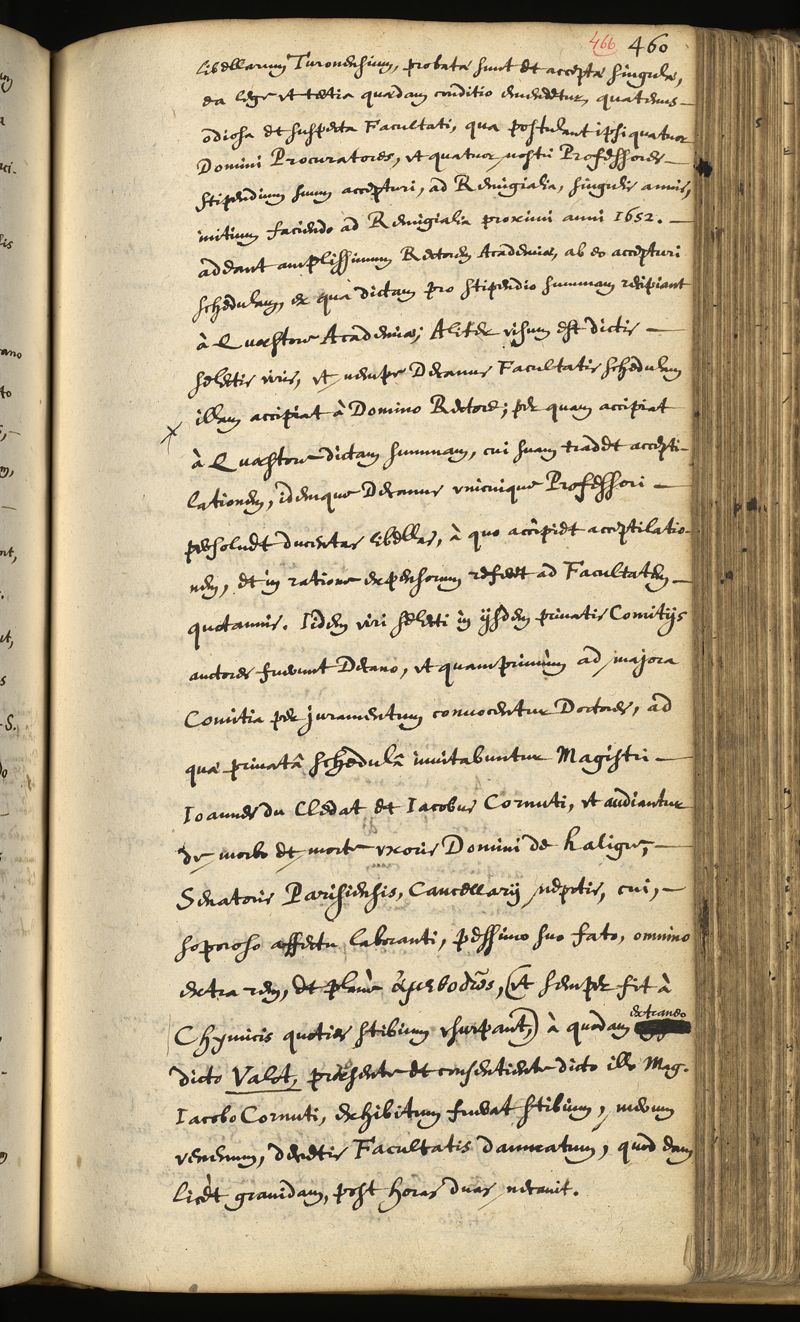 466 460
libellarum Turonensium, probata sunt et accepta singula,
ea lege ut tertia quædam conditio emendetur quatenus
odiosa et suspecta Facultati, qua postulant ipsi quatuor
Domini Procuratores, ut quatuor nostri Professores
stipendium suum accepturi, ad Remigialia, singulis annis,
initium faciendo ad Remigialia proximi anni 1652.
adeant amplissimum Rectorem Academiæ, ab eo accepturi
schedulam ex quâ dictam pro stipendio summam recipiant
à Quæstore Academiæ; Aliter visum est dictis
selectis viris, ut nempe Decanus Facultatis schedulam
illam accipiat à Domino Rectore; per quam accipiat
à Quæstore dictam summam, cui suam tradet accepti-
lationem, idemque Decanus unicuique Professori
persoluet ducentas libellas, à quo accipiet acceptilatio-
nem, et in ratione expensorum referet ad Facultatem
quotannis. Iidem viri selecti in ijsdem privatis Comitijs
auctores fuerunt Decano, ut quamprimùm ad majora
Comitia per juramentum convocentur Doctores, ad
quæ privatâ schedulâ invitabuntur Magistri
Ioannes du Cledat et Iacobus Cornuti, ut audiantur
de morbo et morte uxoris Domini de Haligre,
Senatoris Parisiensis, Cancellarij nepotis, cui,
soporoso affectu laboranti, pessimo suo fato, omnino
extra rem, et planè ἀμεθοδῶς, (ut semper fit à
Chymicis quoties stibium usurpant,) à quodam extraneo
dicto Valot, præsente et consentiente dicto illo Mag.
Iacobo Cornuti, exhibitum fuerat stibium, merum
venenum, decretis Facultatis damnatum, quod eam
licèt gravidam, post horas duas necavit.